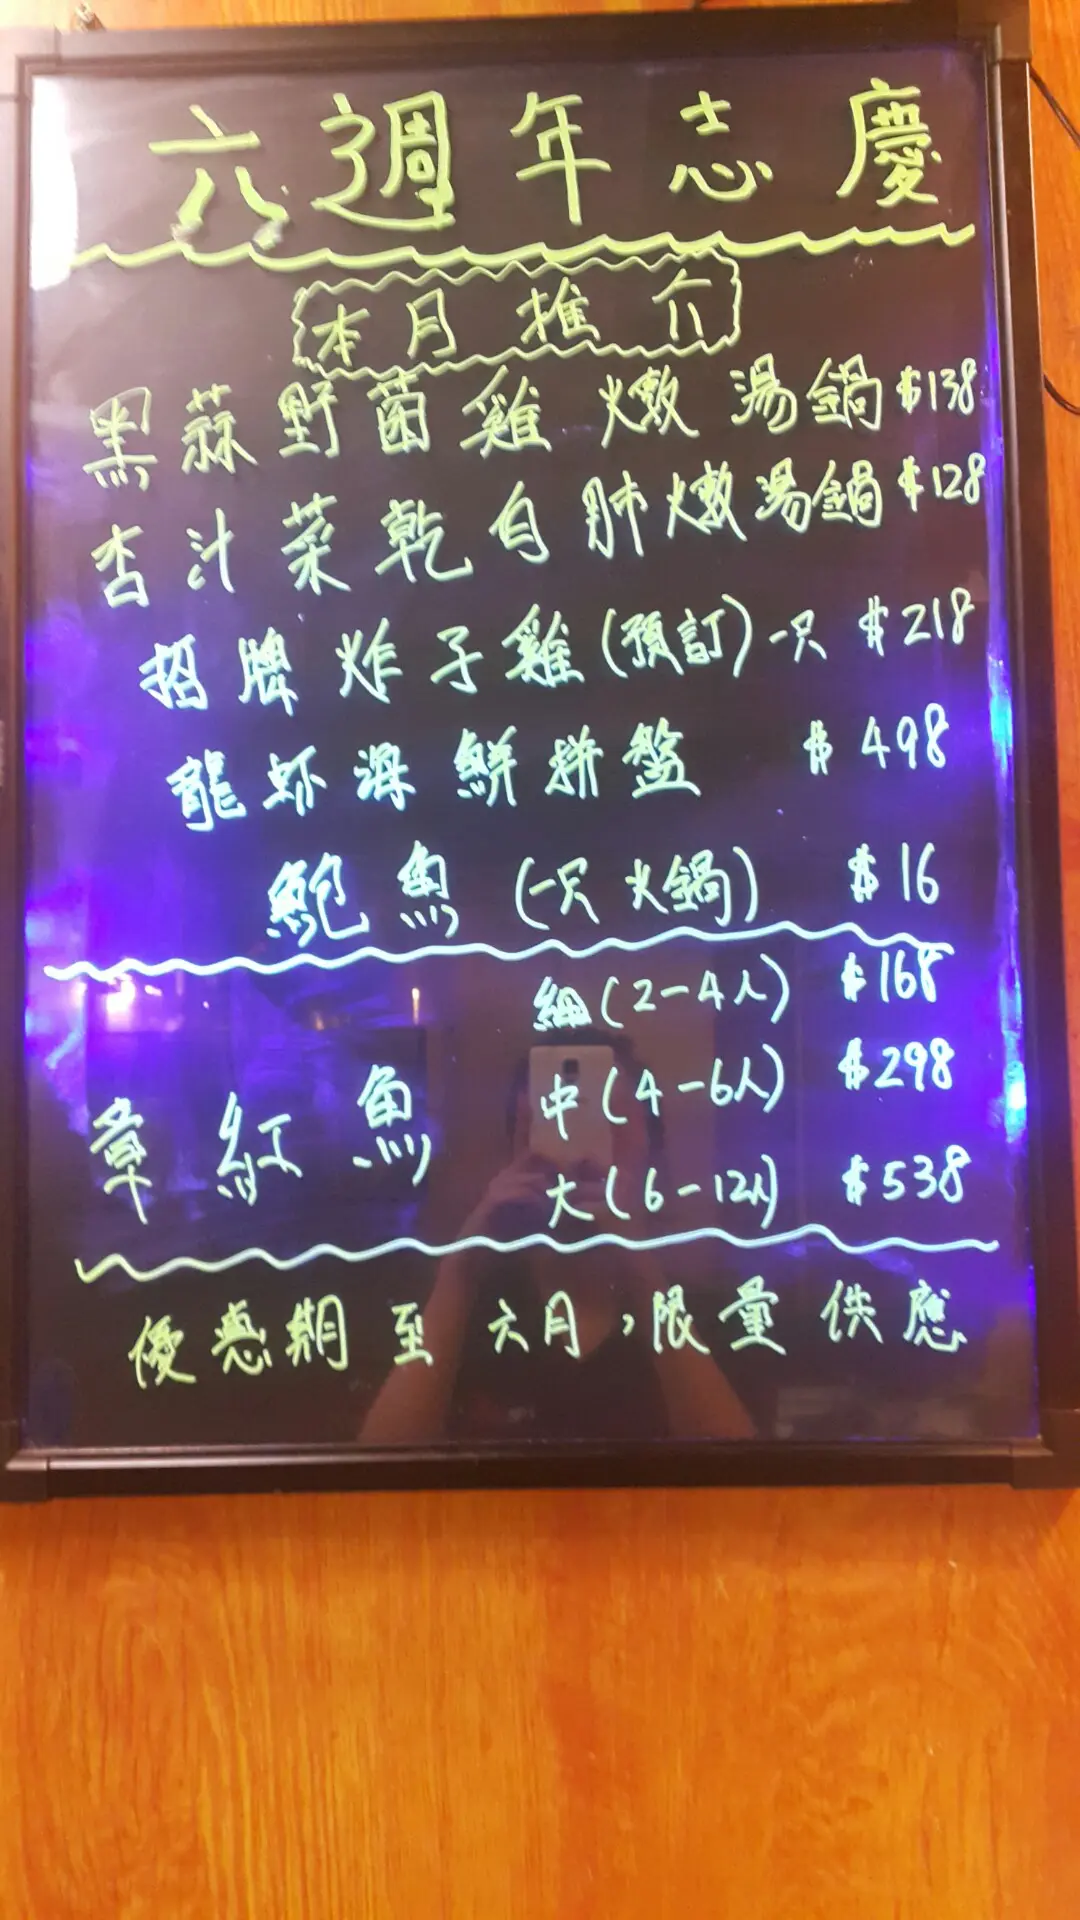 六週年志慶
本月推介
黑蒜野菌雞燉湯鍋 $138
杏汁菜乾白肺燉湯鍋 $128
招牌炸子雞(預訂)一只 $218
龍虾海鮮拼盤 $498
鮑魚(一只火鍋) $16
細(2-4人) $168
章紅魚 中(4-6人) $298
大(6-12人) $538
優惠期至六月,限量供應